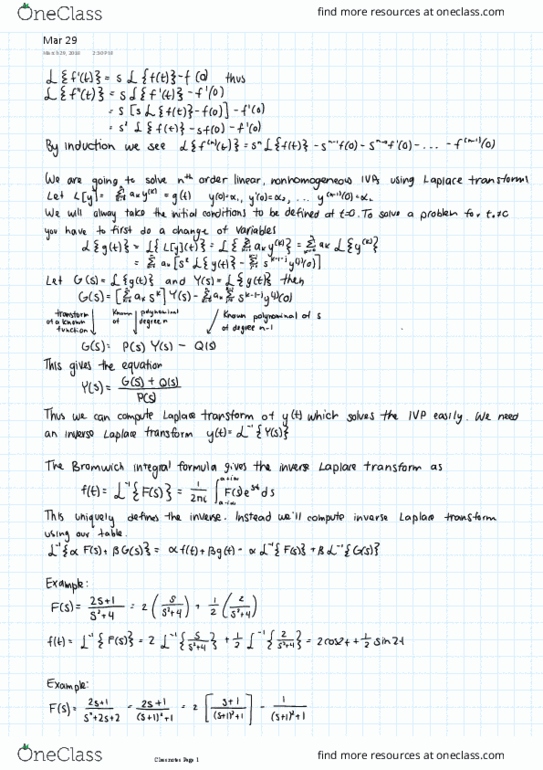 OneClass
find more resources at oneclass.com
Mar 29
2:30 PM
ℒ{f'(t)} = s ℒ{f(t)} - f(0) thus
ℒ{f''(t)} = s ℒ{f'(t)} - f'(0)
= s [s ℒ{f(t)} - f(0)] - f'(0)
= s² ℒ{f(t)} - sf(0) - f'(0)
By induction we see ℒ{f⁽ⁿ⁾(t)} = sⁿ ℒ{f(t)} - sⁿ⁻¹f(0) - sⁿ⁻²f'(0) - ... - f⁽ⁿ⁻¹⁾(0)
We are going to solve nᵗʰ order linear, nonhomogeneous IVPs using Laplace transforms
Let L[y] = Σ aₖ y⁽ᵏ⁾ = g(t) y(0)=α₁, y'(0)=α₂, ... y⁽ⁿ⁻¹⁾(0)=αₙ
We will alway take the initial conditions to be defined at t=0. To solve a problem for
you have to first do a change of variables
ℒ{g(t)} = ℒ{L[y](t)} = ℒ{Σ aₖ y⁽ᵏ⁾} = Σ aₖ ℒ{y⁽ᵏ⁾}
= Σ aₖ [sᵏ ℒ{y(t)} - Σ sᵏ⁻ʲ⁻¹ y⁽ʲ⁾(0)]
Let G(s) = ℒ{g(t)} and Y(s) = ℒ{y(t)} then
G(s) = [Σ aₖ sᵏ] Y(s) - Σ aₖ Σ sᵏ⁻ʲ⁻¹ y⁽ʲ⁾(0)
transform of a known function
Known polynomial of degree n
Known polynominal of s of degree n-1
G(s) = P(s) Y(s) - Q(s)
This gives the equation
Y(s) = (G(s) + Q(s)) / P(s)
Thus we can compute Laplace transform of y(t) which solves the IVP easily. We need
an inverse Laplace transform y(t) = ℒ⁻¹{Y(s)}
The Bromwich integral formula gives the inverse Laplace transform as
f(t) = ℒ⁻¹{F(s)} = 1/2πi ∫ F(s)eˢᵗ ds
This uniquely defines the inverse. Instead we'll compute inverse Laplace transform
using our table.
ℒ⁻¹{αF(s) + βG(s)} = αf(t) + βg(t) = α ℒ⁻¹{F(s)} + β ℒ⁻¹{G(s)}
Example:
F(s) = (2s+1)/(s²+4) = 2 (s/(s²+4)) + 1/2 (2/(s²+4))
f(t) = ℒ⁻¹{F(s)} = 2 ℒ⁻¹{s/(s²+4)} + 1/2 ℒ⁻¹{2/(s²+4)} = 2cos2t + 1/2 sin2t
Example:
F(s) = (2s+1)/(s²+2s+2) = (2s+1)/((s+1)²+1) = 2 [(s+1)/((s+1)²+1)] - 1/((s+1)²+1)
OneClass
Class notes Page 1
find more resources at oneclass.com